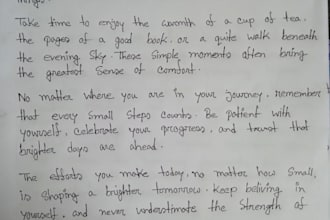 things.
Take time to enjoy the warmth of a cup of tea.
the pages of a good book, or a quite walk beneath
the evening sky. These simple moments often bring
the greatest sense of comfort.
No matter where you are in your journey, remember
that every small steps counts. Be patient with
yourself, celebrate your progress, and trust that
brighter days are ahead.
The efforts you make today, no matter how small,
is shaping a brighter tomorrow. Keep beliving in
yourself, and never understimate the strength of